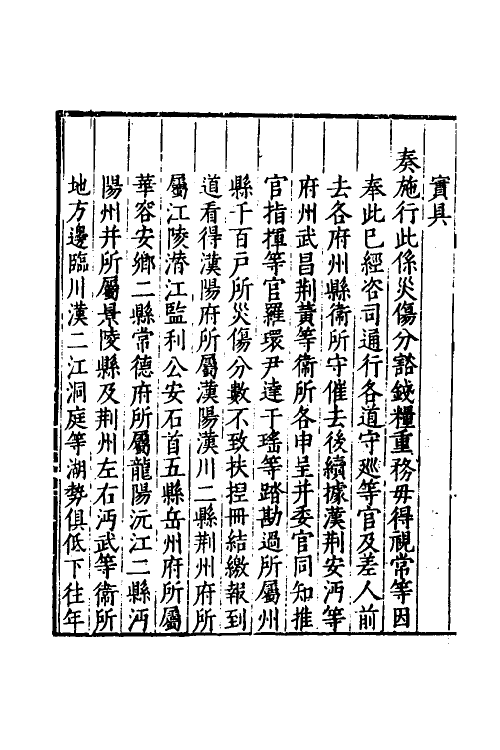 實具
奏施行此係災傷分豁錢糧重務毋得視常等因
奉此已經咨司通行各道守廵等官及差人前
去各府州縣衞所守催去後續據漢荆安沔等
府州武昌荆黄等衞所各申呈并委官同知推
官指揮等官羅環尹達于瑤等踏勘過所屬州
縣千百戸所災傷分數不致扶捏冊結繳報到
道看得漢陽府所屬漢陽漢川二縣荆州府所
屬江陵潛江監利公安石首五縣岳州府所屬
華容安鄉二縣常德府所屬龍陽沅江二縣沔
陽州并所屬景陵縣及荆州左右沔武等衞所
地方邊臨川漢二江洞庭等湖勢俱低下往年